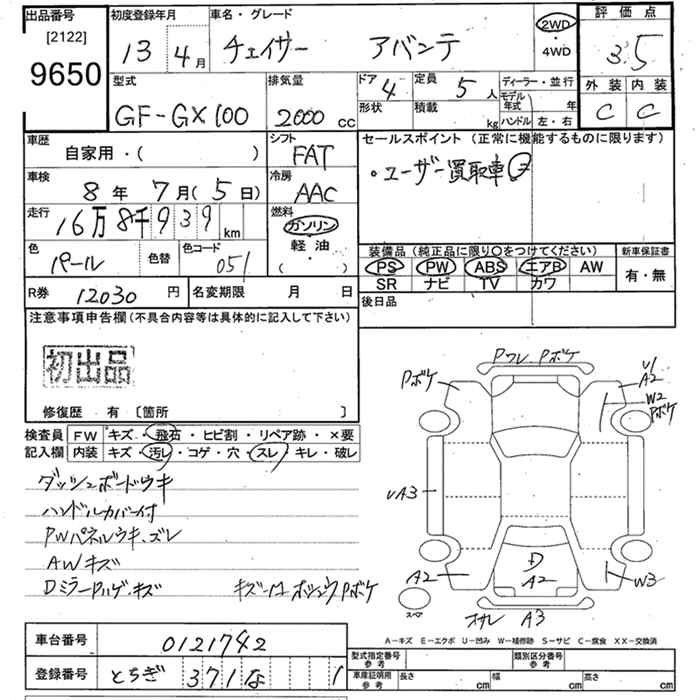 出品番号 初度登録年月 車名・グレード 評価点
[2122] 9650 13年 4月 チェイサー アバンテ 2WD・4WD 3.5
型式 排気量 ドア 4 定員 5人 ディーラー・並行 外装 内装
GF-GX100 2000cc 形状 積載 kg モデル年式 年 ハンドル 左・右 C C
車歴 シフト セールスポイント (正常に機能するものに限ります)
自家用・( ) FAT
・ユーザー買取車
車検 冷房
8年 7月(5日) AAC
走行 燃料
16万8千939km ガソリン 軽油 ( )
色 色替 色コード 装備品(純正品に限り○をつけてください) 新車保証書
パール 051 PS PW ABS エアB AW 有・無
SR ナビ TV カワ
R券 12030円 名変期限 月 日 後日品
注意事項申告欄(不具合内容等は具体的に記入して下さい)
初出品
修復歴 有 [箇所 ]
検査員記入欄 FW キズ・飛石・ヒビ割・リペア跡・×要
内装 キズ・汚レ・コゲ・穴・スレ・キレ・破レ
ダッシュボードウキ
ハンドルカバー付
PWパネルウキ、ズレ
AWキズ
Pワレ、Pボケ
Pボケ
U1
A2
W2
Pボケ
UA3
D
A2
A2
W3
スペア
A3
A-キズ E-エクボ U-凹み W-補修跡 S-サビ C-腐食 XX-交換済
車台番号 0121742
登録番号 とちぎ 371 な 1
型式指定番号 参考 類別区分番号 参考
車庫証明用 参考 長さ cm 幅 cm 高さ cm